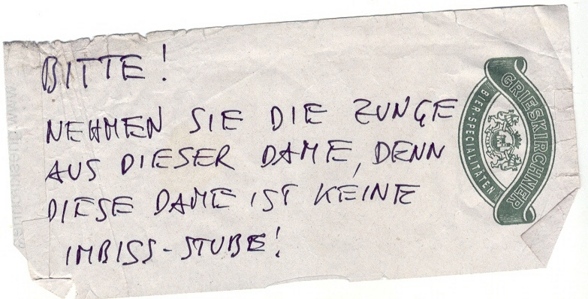 BITTE!
NEHMEN SIE DIE ZUNGE
AUS DIESER DAME, DENN
DIESE DAME IST KEINE
IMBISS-STUBE!
GRIESKIRCHNER
BIER-SPECIALITÄTEN